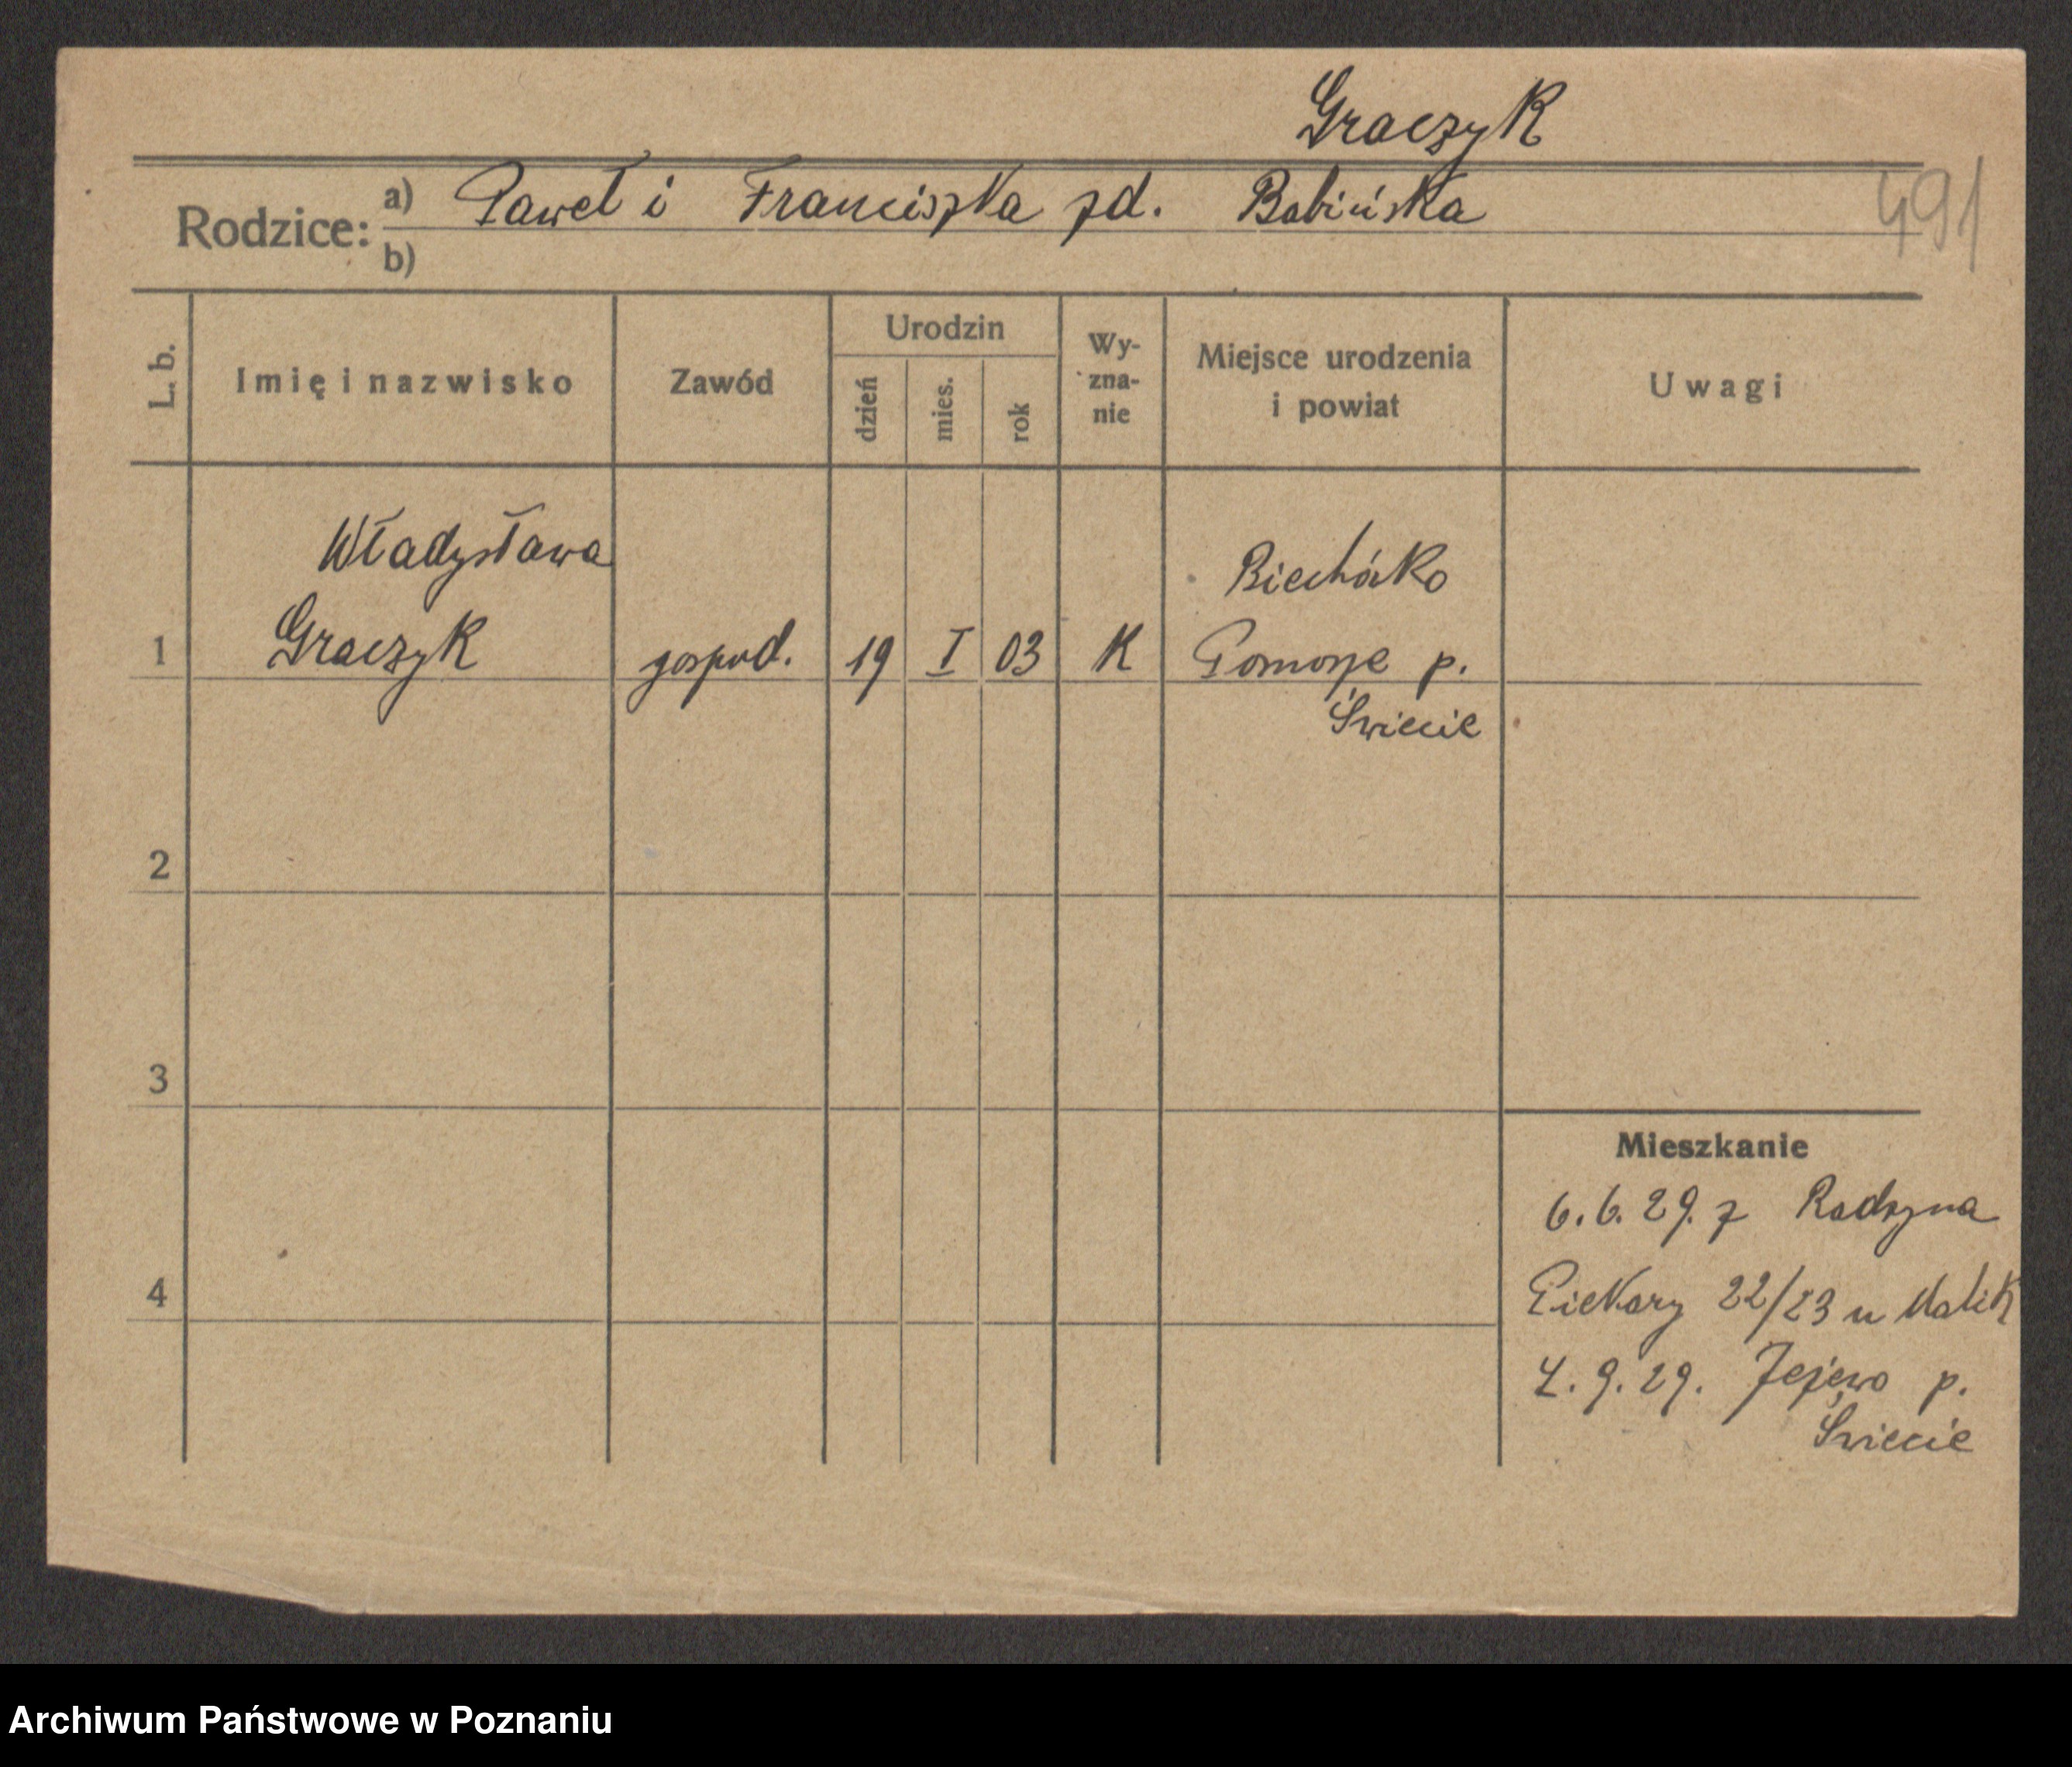 Graczyk
491
Rodzice: a) Paweł i Franciszka zd. Babińska
b)
L. b. Imię i nazwisko Zawód Urodzin dzień mies. rok Wy-zna-nie Miejsce urodzenia i powiat Uwagi
Władysława
Biechówko
1 Graczyk gospod. 19 I 03 K Pomorze p.
Świecie
2
3
Mieszkanie
6.6.29. z Radzyna
4
Piekary 22/23 u Malik
4.9.29. Jeżewo p.
Świecie
Archiwum Państwowe w Poznaniu